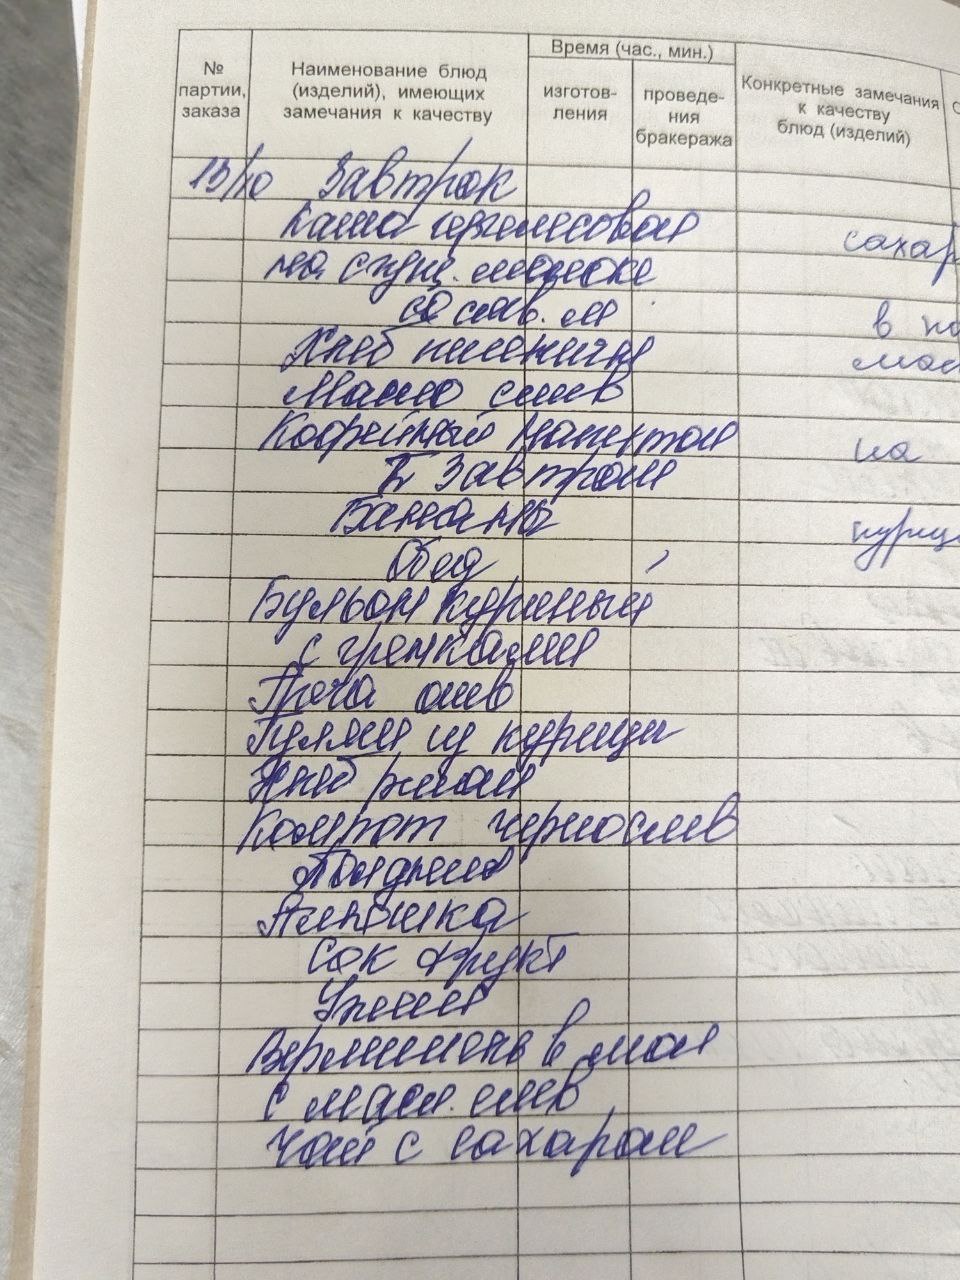 № партии, заказа
Наименование блюд (изделий), имеющих замечания к качеству
Время (час., мин.)
изготов-
ления
проведе-
ния
бракеража
Конкретные замечания
к качеству
блюд (изделий)
13/10 Завтрак
Каша
на сгущ. молоке
со слив. м
Хлеб пшенич
Масло слив
Кофейный напиток
Завтрак
Бананы
Обед
Бульон куриный
с гренками
Греча слив
Гуляш из курицы
Хлеб ржан
Компот чернослив
Полдник
Сок фрукт
Ужин
Вермишель в мол
с масл. слив
Чай с сахаром
сахар
в
на
куриц